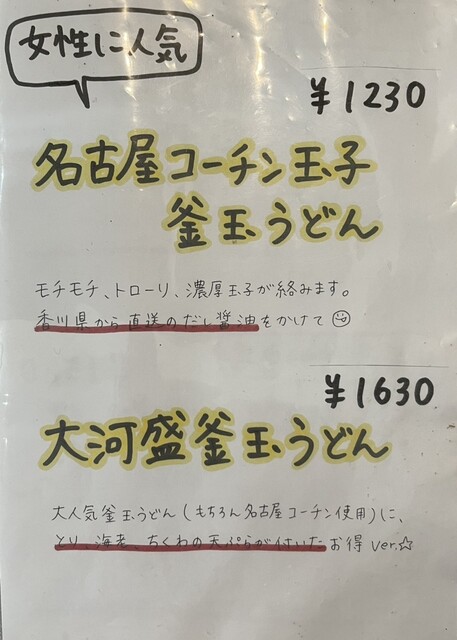 女性に人気
¥1230
名古屋コーチン玉子
釜玉うどん
モチモチ、トローリ、濃厚玉子が絡みます。
香川県から直送のだし醤油をかけて
¥1630
大河盛釜玉うどん
大人気釜玉うどん(もちろん名古屋コーチン使用)に、
とり、海老、ちくわの天ぷらが付いたお得ver.☆